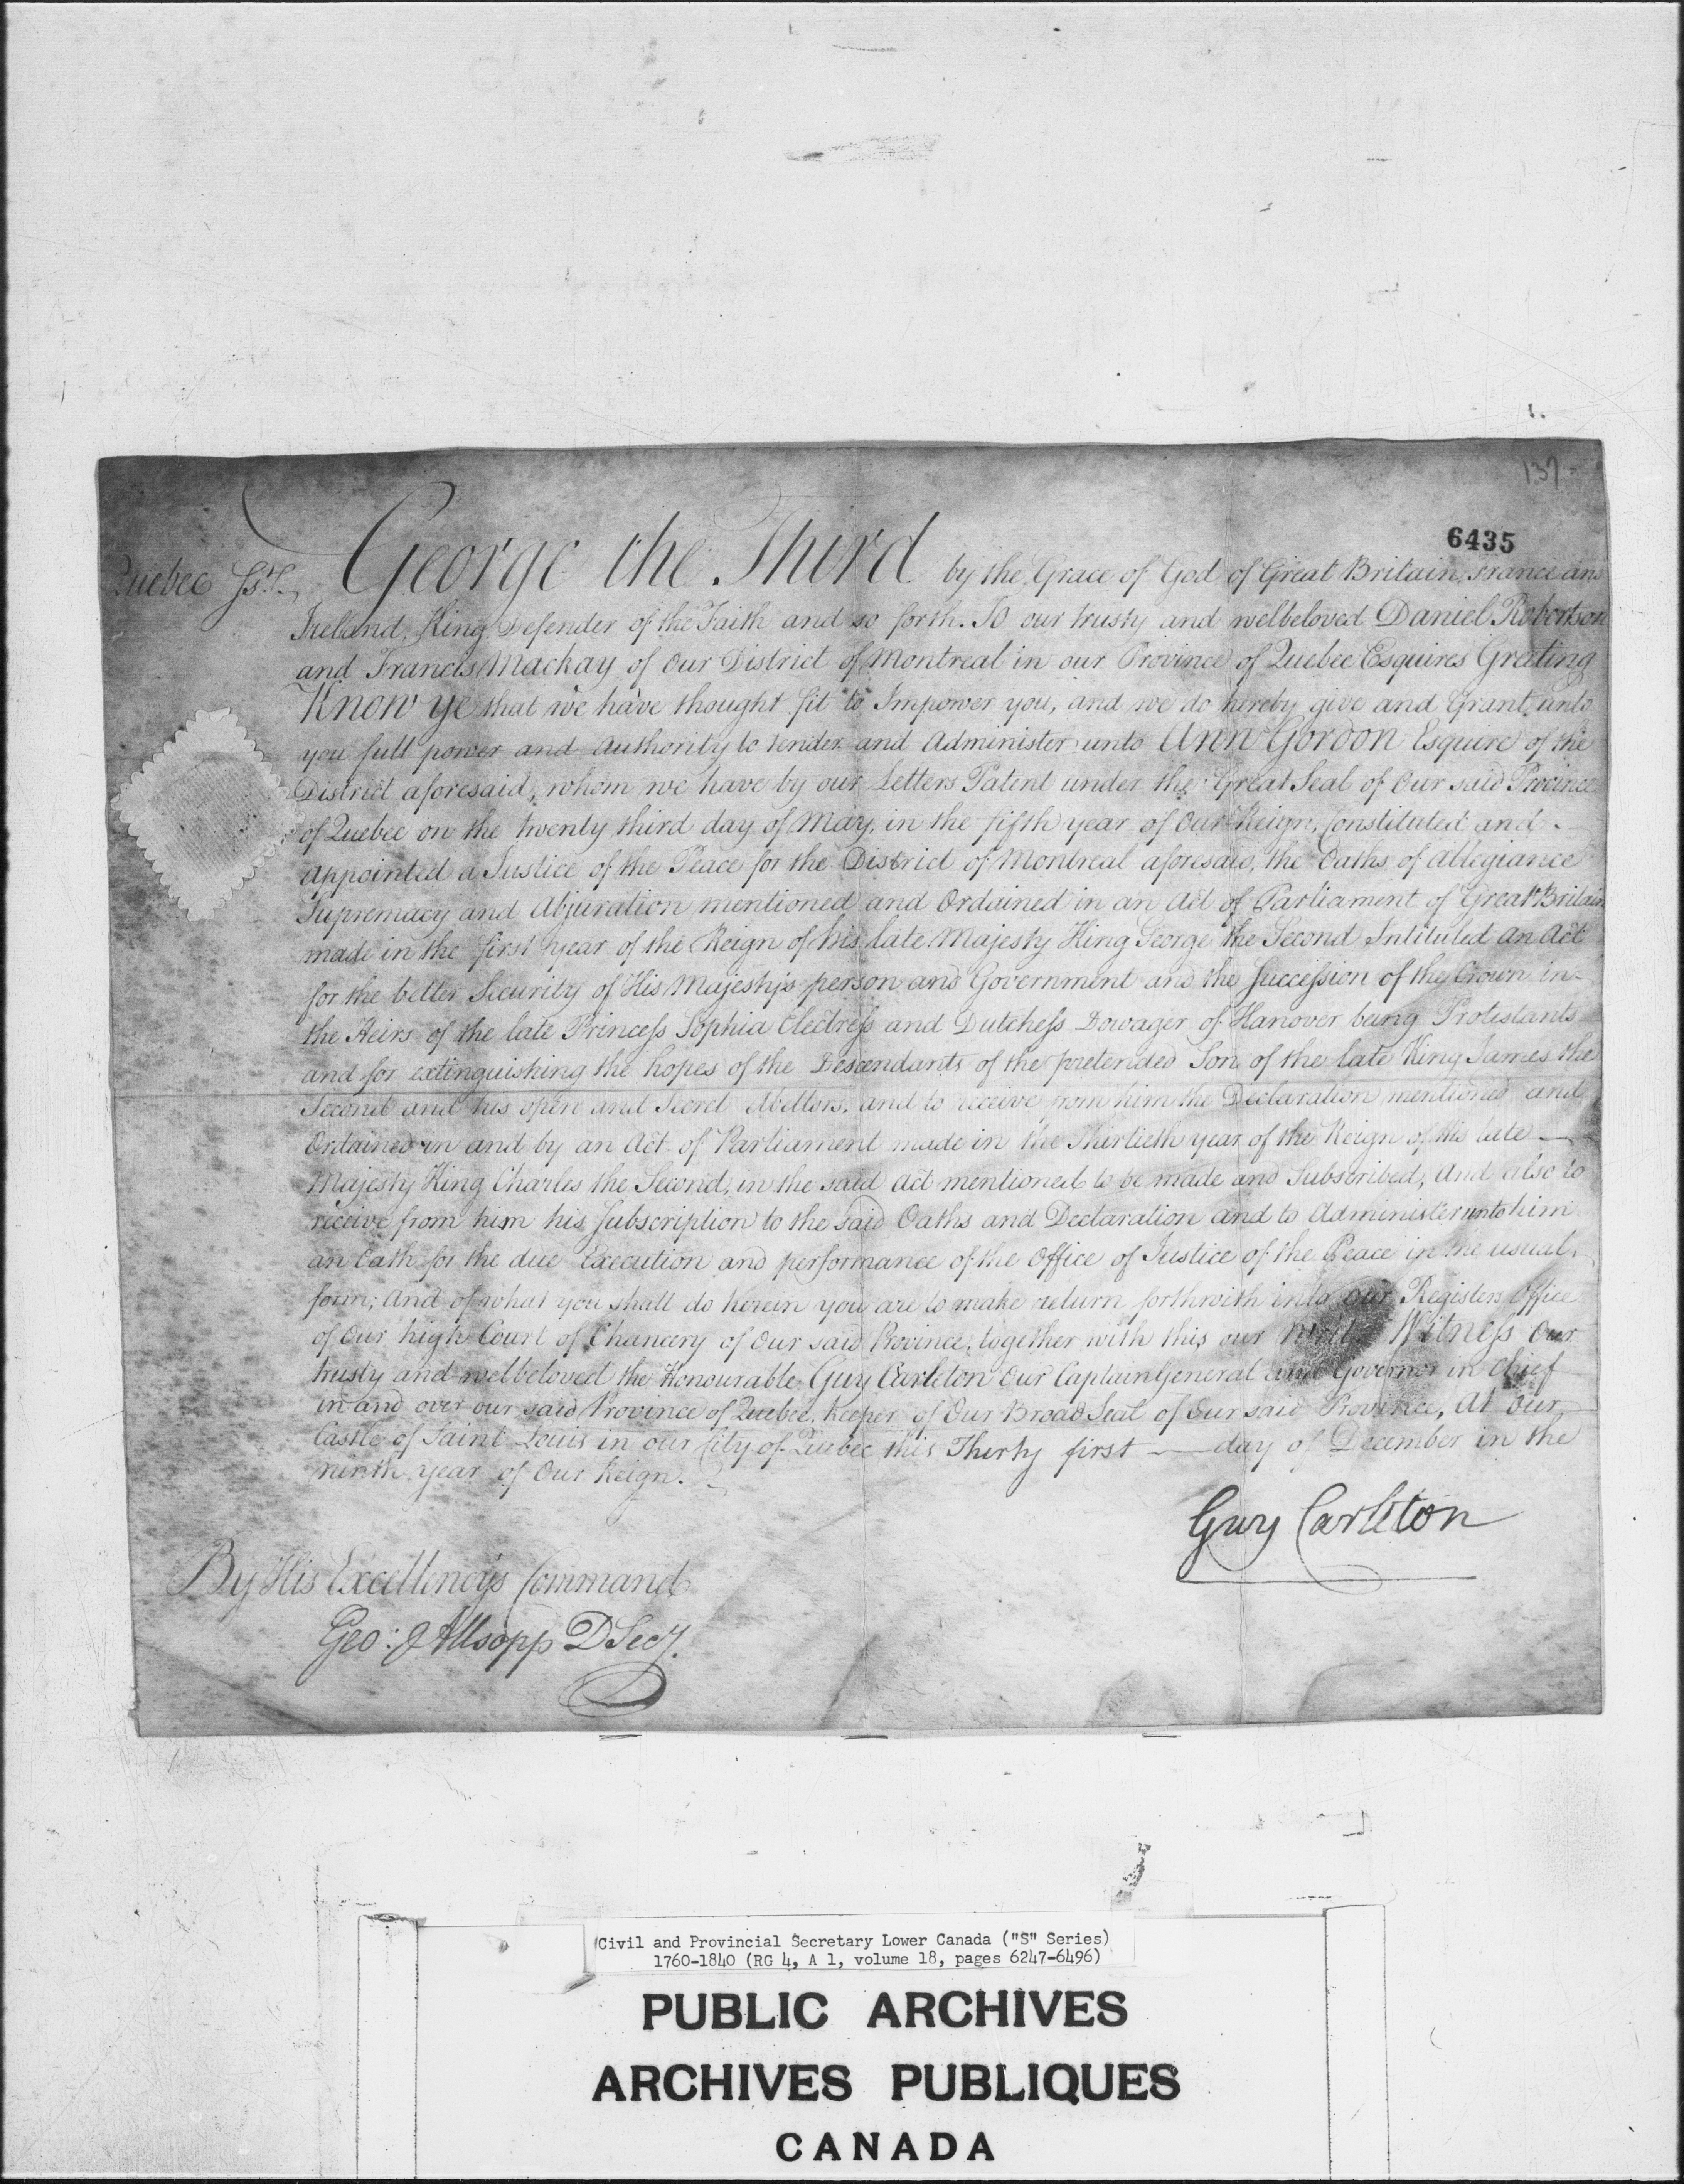 137
6435
Quebec Ss.t George the Third by the Grace of God of Great Britain, France and
Ireland, King Defender of the Faith and so forth. To our trusty and welbeloved Daniel Robertson
and Francis Mackay of Our District of Montreal in our Province of Quebec Esquires Greeting
Know ye that we have thought fit to Impower you, and we do hereby give and Grant unto
you full power and Authority to tender and Administer unto Ann Gordon Esquire of the
District aforesaid, whom we have by our Letters Patent under the Great Seal of Our said Province
of Quebec on the twenty third day of May, in the fifth year of Our Reign, Constituted and
appointed a Justice of the Peace for the District of Montreal aforesaid, the Oaths of Allegiance
Supremacy and Abjuration mentioned and Ordained in an Act of Parliament of Great Britain
made in the first year of the Reign of his late Majesty King George the Second Intituled An Act
for the better Security of His Majesty's person and Government and the Succession of the Crown in
the Heirs of the late Princess Sophia Electress and Dutchess Dowager of Hanover being Protestants
and for extinguishing the hopes of the Descendants of the pretended Son of the late King James the
Second and his open and Secret Abettors, and to receive from him the Declaration mentioned and
Ordained in and by an Act of Parliament made in the Thirtieth year of the Reign of his late
Majesty King Charles the Second, in the said Act mentioned to be made and Subscribed, And also to
receive from him his Subscription to the said Oaths and Declaration and to Administer unto him
an Oath for the due Execution and performance of the Office of Justice of the Peace in the usual
form; And of what you shall do herein you are to make return forthwith into our Registers Office
of Our high Court of Chancery of Our said Province, together with this our Writ. Witness Our
trusty and welbeloved the Honourable Guy Carleton Our Captain General and Governor in Chief
in and over our said Province of Quebec, Keeper of Our Broad Seal of Our said Province, At Our
Castle of Saint Louis in our City of Quebec this Thirty first day of December in the
ninth year of Our Reign.
Guy Carleton
By His Excellency's Command
Geo: Allsopp D Secy.
Civil and Provincial Secretary Lower Canada ("S" Series)
1760-1840 (RG 4, A 1, volume 18, pages 6247-6496)
PUBLIC ARCHIVES
ARCHIVES PUBLIQUES
CANADA